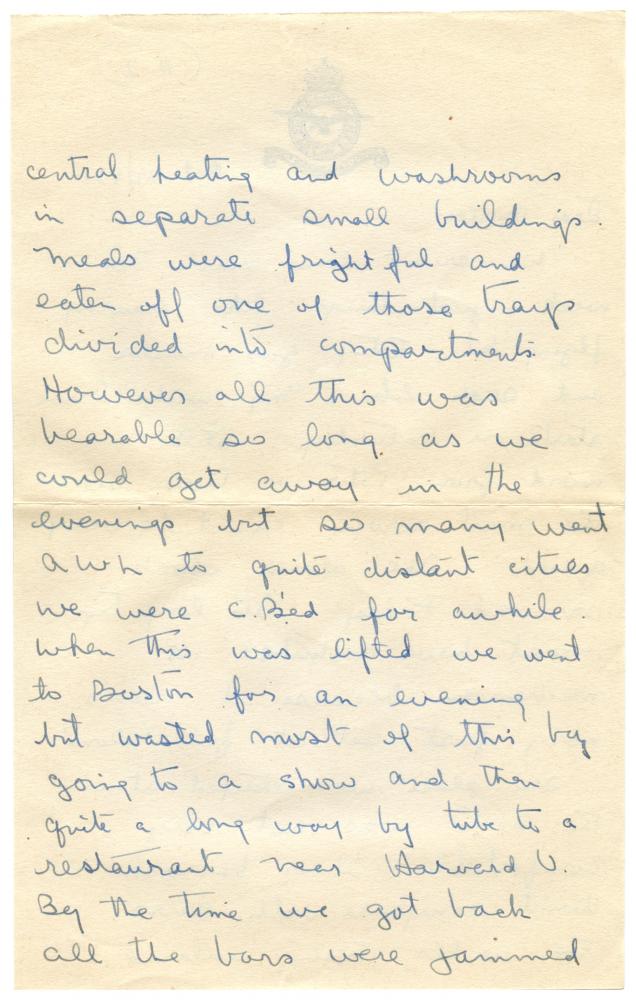 central heating and washrooms
in separate small buildings.
Meals were fright ful and
eaten off one of those trays
divided into compartments.
However all this was
bearable so long as we
could get away in the
evenings but so many went
AWL to quite distant cities
we were C.B'ed for awhile.
When this was lifted we went
to Boston for an evening
but wasted most of this by
going to a show and then
quite a long way by tube to a
restaurant near Harvard U.
By the time we got back
all the bars were jammed